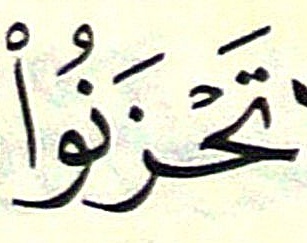 تَحْزَنُوا۟